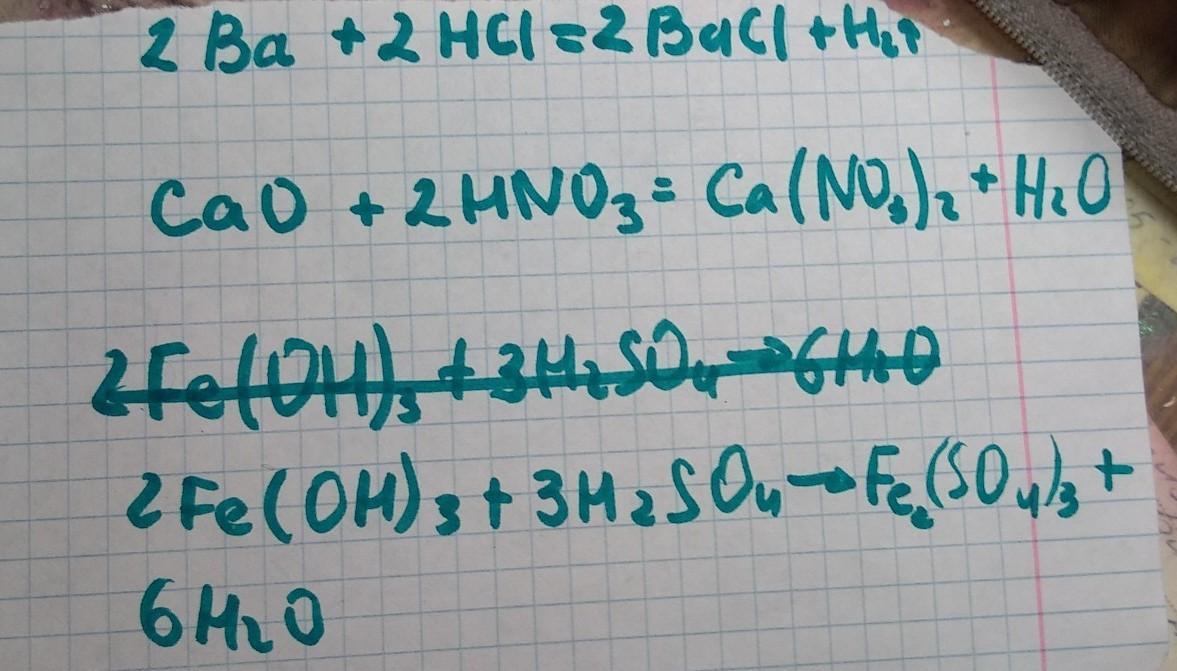 2 Ba + 2 HCl = 2 BaCl + H₂↑
CaO + 2HNO₃ = Ca(NO₃)₂ + H₂O
2Fe(OH)₃ + 3H₂SO₄ → 6H₂O
2Fe(OH)₃ + 3H₂SO₄ → Fe₂(SO₄)₃ +
6H₂O